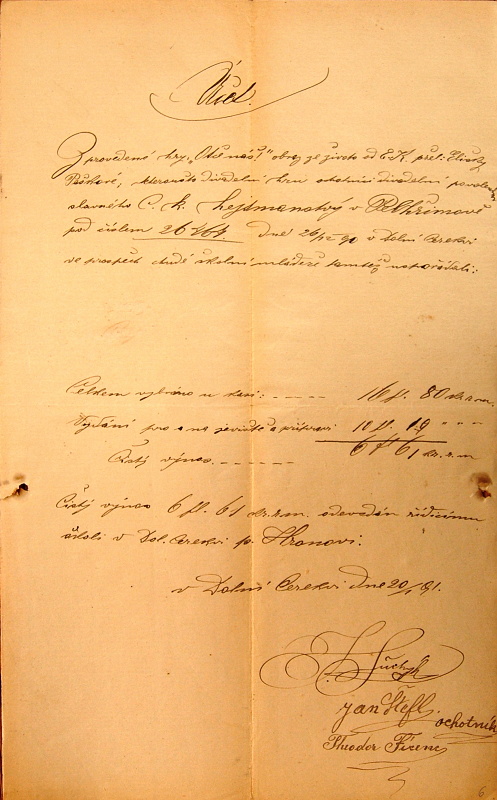 Účet.
Z provedené hry „Otče náš!" obraz ze života od E. K. přel. Elišky
Peškové, kteroužto divadelní hru ochotníci divadelní povolením
slavného C. k. hejtmanství v Pelhřimově
pod číslem dne 26/12 90 v Dolní Cerekvi
ve prospěch chudé školní mládeže tamtéž uspořádali:
Celkem vybráno u kasy: - - - - 16 fl. 80 kr. r. m.
Vydání pro a na jeviště a přípravy 10 fl. 19 " " "
Čistý výnos - - - - - 6 fl 61 kr. r. m
Čistý výnos 6 fl. 61 kr. r. m. odevzdán řídicímu
školy v Dol. Cerekvi p. Hronovi.
v Dolní Cerekvi dne 20/1 91.
Jan Štefl. ochotník
Theodor
6